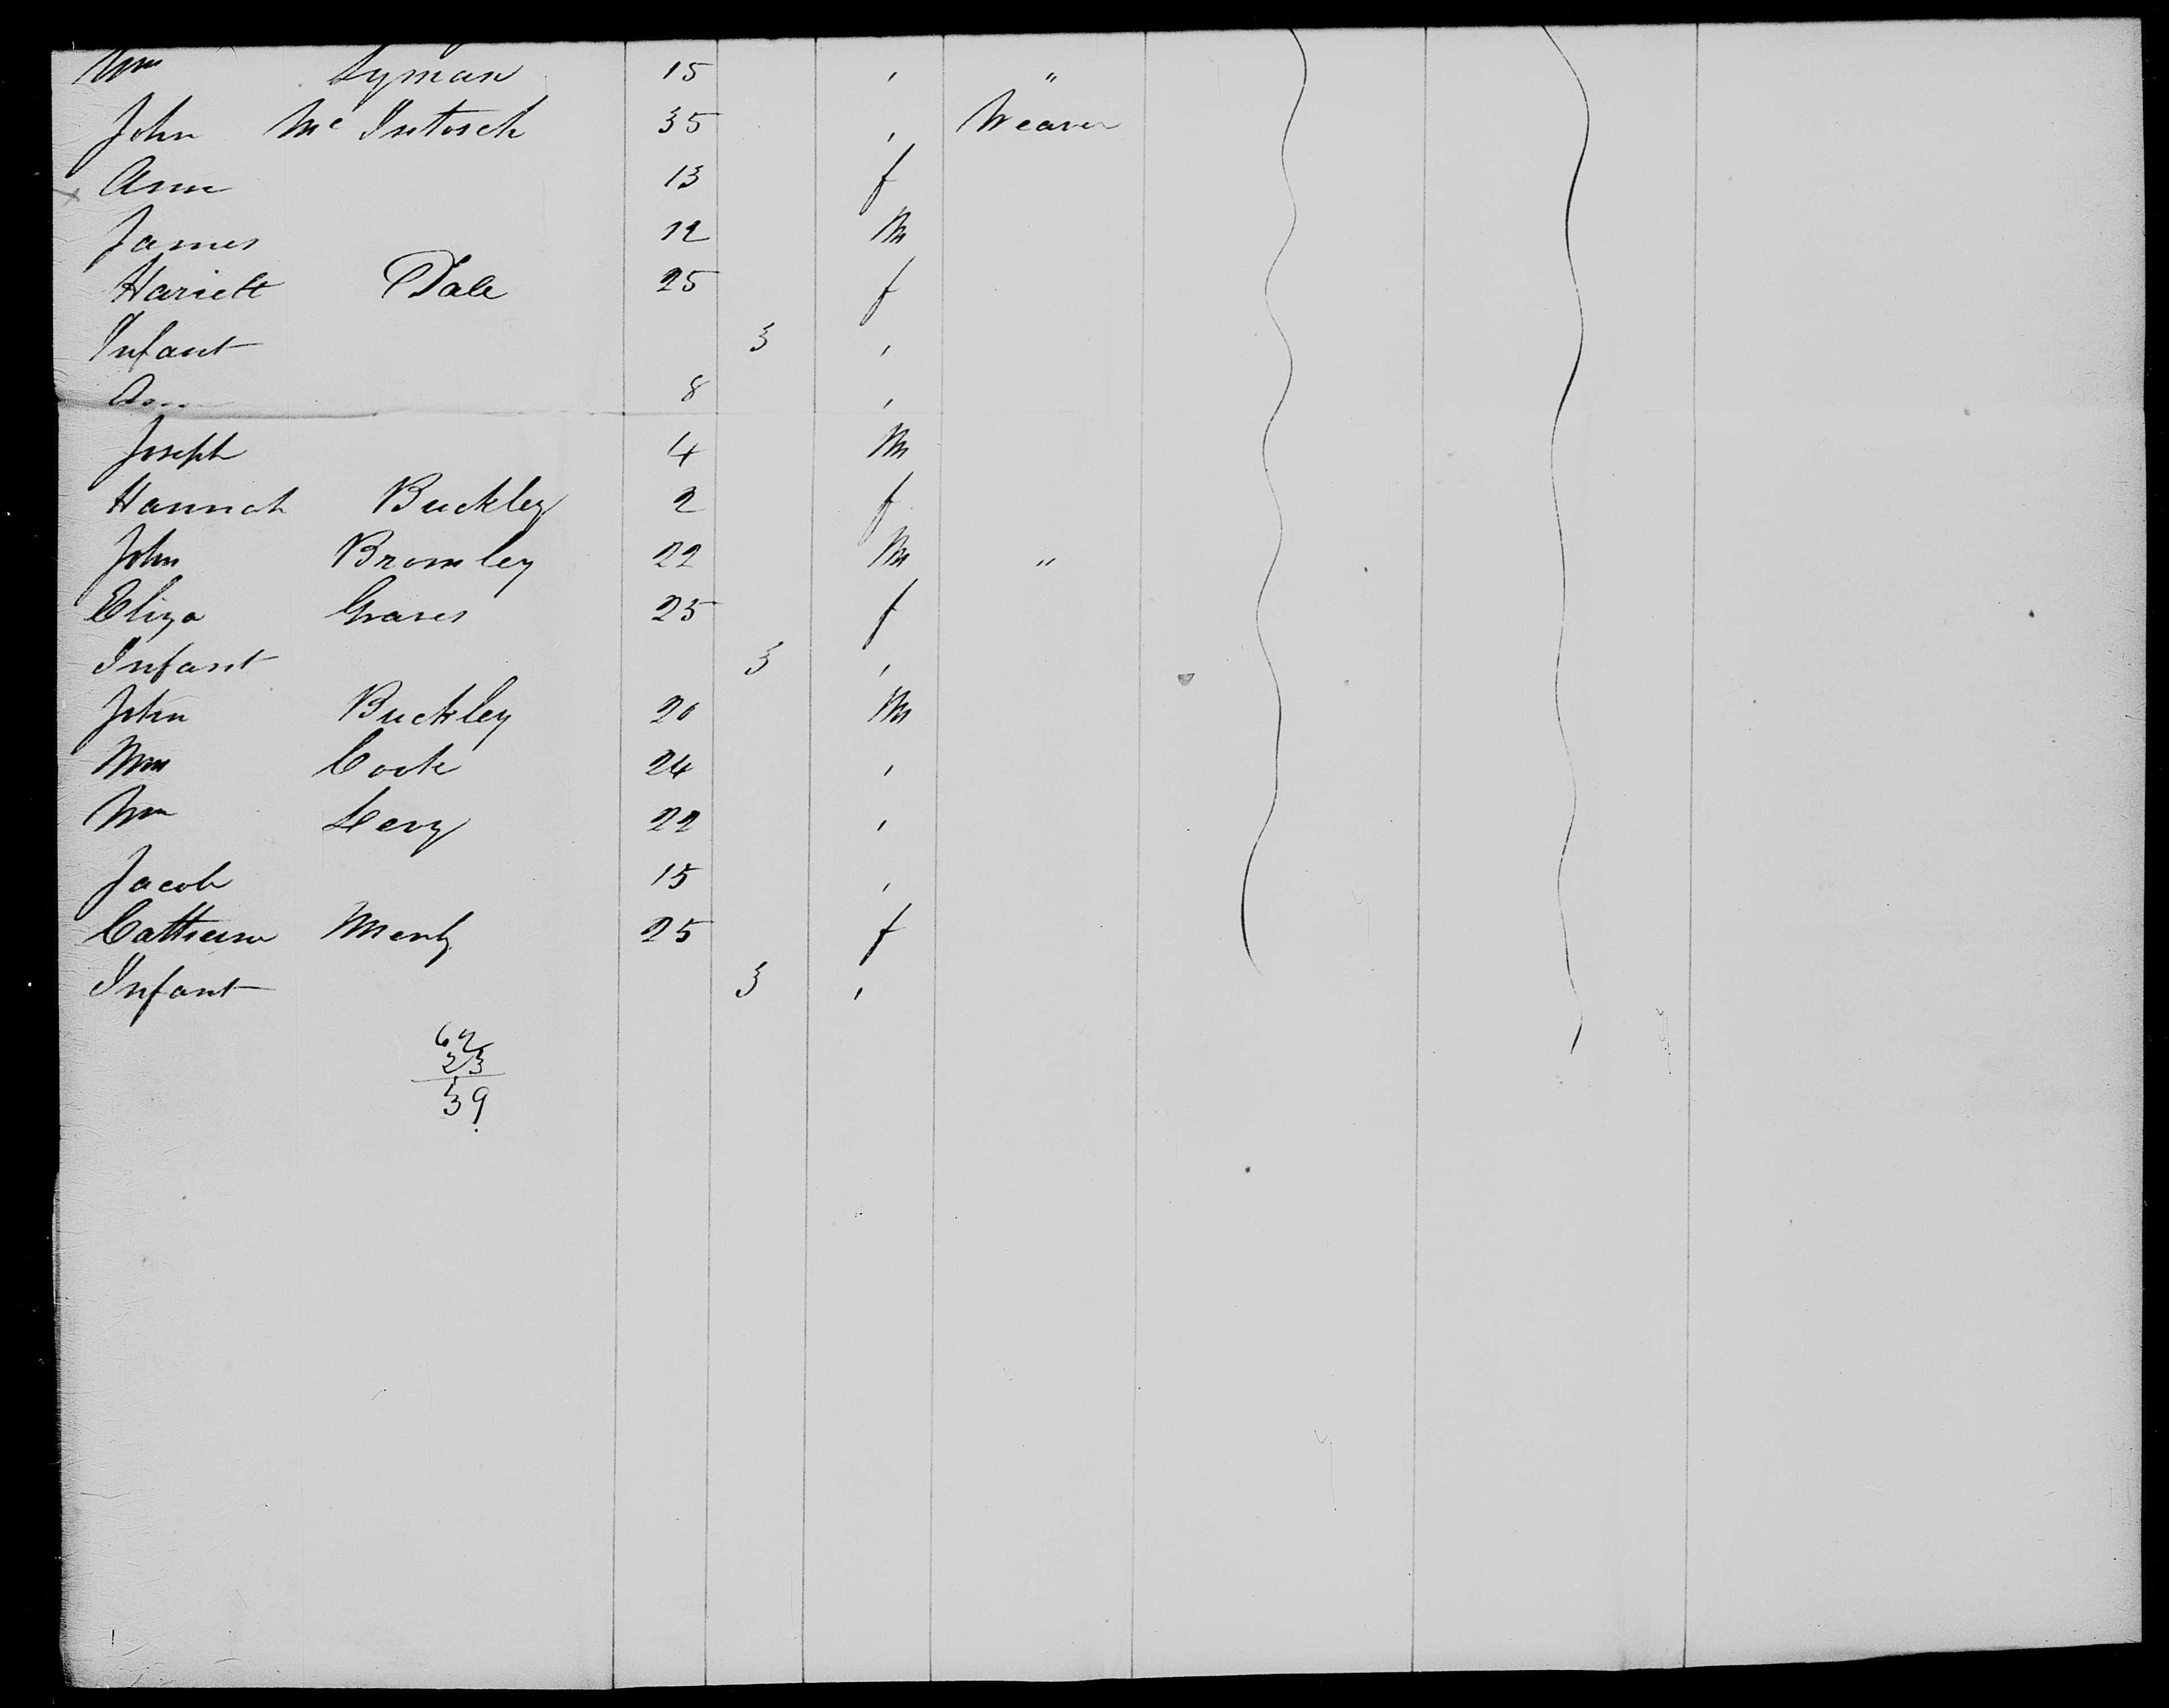 Wm Lyman 15 , "
John Mc Intosch 35 , Weaver
Ann 13 f
James 12 M
Hariett Dale 25 f
Infant 3 ,
Ann 8 ,
Joseph 4 M
Hannah Buckley 2 f
John Bromley 22 M "
Eliza Graves 25 f
Infant 3 ,
John Buckley 20 M
Wm Cook 24 ,
Wm Levy 22 ,
Jacob 15 ,
Catherine 25 f
Infant 3 ,
62
23
39